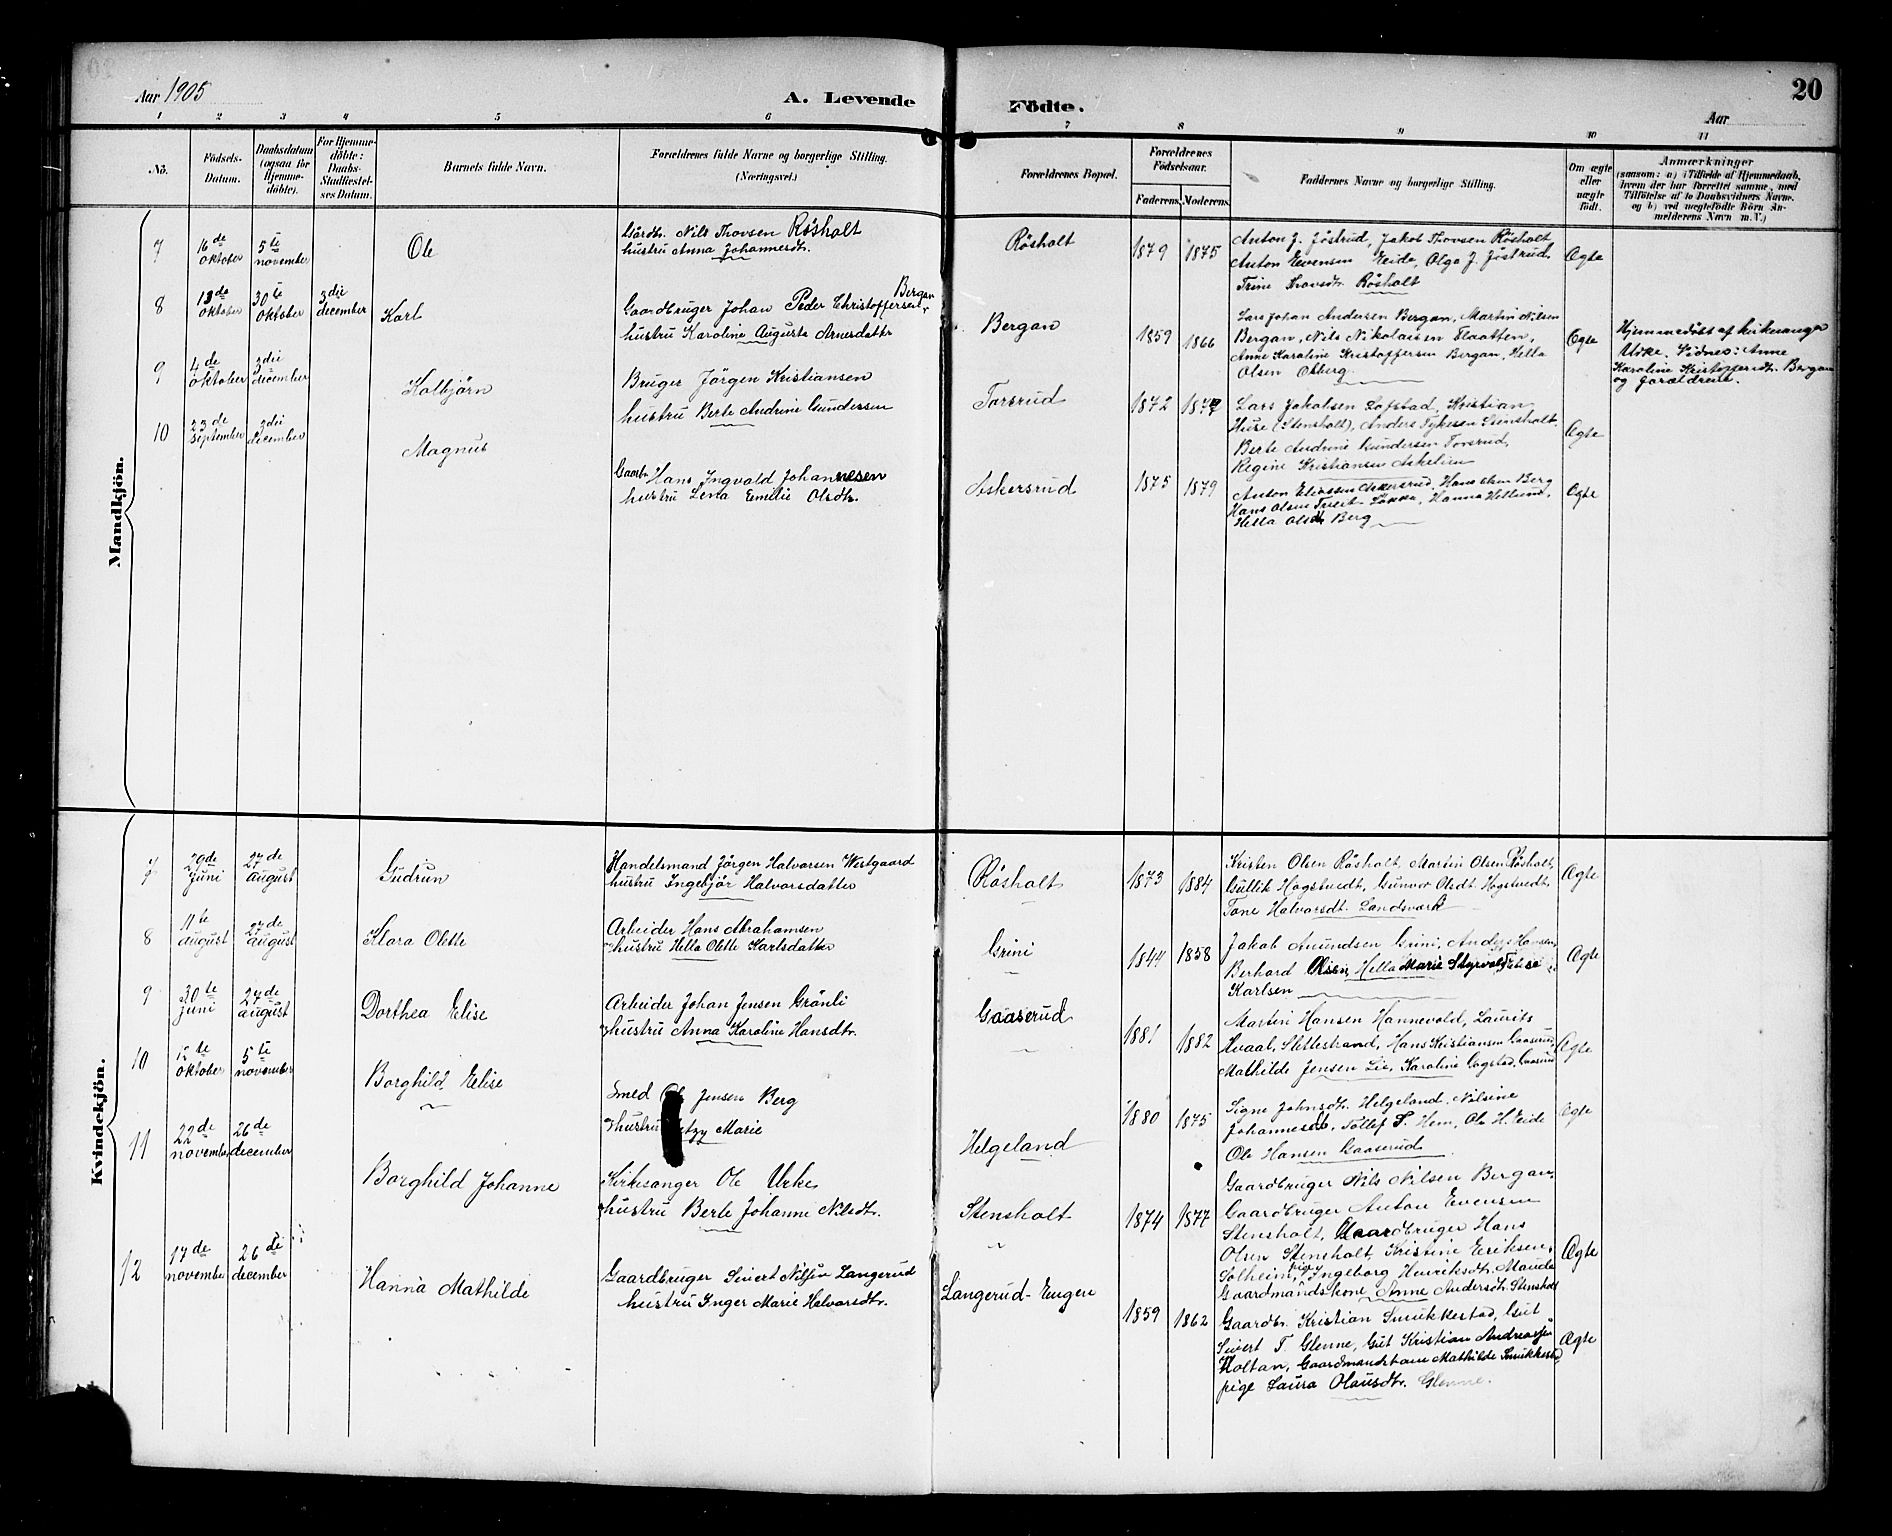 Aar 1905
A. Levende Födte.
20
Aar
1 2 3 4 5 6 7 8 9 10 11
No.
Födsels-
Datum.
Daabsdatum
(ogsaa for
Hjemme-
döbte).
For Hjemme-
döbte:
Daabs-
Stadfæstel-
ses Datum.
Barnets fulde Navn.
Forældrenes fulde Navne og borgerlige Stilling.
(Næringsvei.)
Forældrenes Bopæl.
Forældrenes
Födselsaar.
Faderens. Moderens.
Faddernes Navne og borgerlige Stilling.
Om ægte
eller
uægte
födt.
Anmærkninger
(saasom: a) i Tilfælde af Hjemmedaab,
hvem der har forrettet samme, med
Tilföielse af to Daabsvidners Navne,
og b) ved uægtefödte Börn An-
melderens Navn m. V.)
Mandkjön.
7
16de
oktober
5te
november
Ole
Gårdbr. Nils Thovsen Rösholt
hustru Anna Johannesdtr.
Rösholt
1879 1875
Anton J. Jöstrud, Jakob Thovsen Rösholt,
Anton Evensen Eide, Olga J. Jöstrud,
Trine Thovsdtr. Rösholt
Ægte
8
13de
oktober
30te
oktober
3die
december
Karl
Gaardbruger Johan Peder Christoffersen Bergan
hustru Karoline Augusta Arnesdatter
Bergan
1859 1866
Lars Johan Andersen Bergan, Martin Nilsen
Bergan, Nils Nikolaisen Flaatten,
Anne Karoline Kristoffersen Bergan, Hella
Olsen Okberg
Ægte
Hjemmedöbt af kirkesanger
Urke. Vidner: Anne
Karoline Kristoffersdtr. Bergan
og forældrene.
9
4de
oktober
3die
december
Kolbjörn
Bruger Jörgen Kristiansen
hustru Berte Andrine Gundersen
Torsrud
1872 1877
Lars Jakobsen Lofstad, Kristian
Huse (Stensholt), Anders Tykesen Stensholt
Berte Andrine Gundersen Torsrud,
Regine Kristiansen Askelien
Ægte
10
23de
september
3die
december
Magnus
Gaardb. Hans Ingvald Johannesen
hustru Lena Emilie Olsdtr.
Askersrud
1875 1879
Anton Eliassen Askersrud, Hans Olsen Berg
Hans Olsen Løkka, Hanna Hellum,
Hella Olsdtr Berg
Ægte
Kvindekjön.
7
29de
Juni
27de
august
Gudrun
Handelsmand Jörgen Halvorsen Westgaard
hustru Ingebjör Halvorsdatter
Rösholt
1873 1884
Kristen Olsen Rösholt, Martin Olsen Rösholt,
Gullik Hogstvedt, Gunvor Olsdt. Hogstvedt,
Tone Halvorsdt. Landsverk
Ægte
8
11te
august
27de
august
Klara Olette
Arbeider Hans Abrahamsen
hustru Hella Olette Karlsdatter
Grini
1844 1858
Jakob Amundsen Grini, Anders Hansen,
Berhard Olsen, Hella Marie Styrvold, Elise
Karlsen
Ægte
9
30te
Juni
27de
august
Dorthea Elise
Arbeider Johan Jensen Grönli
hustru Anna Karoline Hansdtr.
Gaaserud
1881 1882
Martin Hansen Hannevold, Laurits
Hvaal, Slettestrand, Hans Kristiansen Gaaserud,
Mathilde Jensen Lie, Karoline Gogstad, Gaaserud
Ægte
10
12te
oktober
5te
november
Borghild Elise
Smed Ole Jensen Berg
hustru Marie
Helgeland
1880 1875
Signe Johnsdtr. Helgeland, Nilsine
Johannesdt, Tollef S. Hem, Ole H. Eide
Ole Hansen Gaaserud
Ægte
11
22de
november
26de
december
Borghild Johanne
Kirkesanger Ole Urke
hustru Berte Johanne Nilsdtr.
Stensholt
1874 1877
Gaardbruger Nils Nilsen Bergan,
Gaardbruger Anton Evensen
Stensholt, Gaardbruger Hans
Olsen Stensholt, Kristine Eriksen,
Solheim, pige Ingeborg Henriksdtr. Maude
Gaardmandskone Anne Andersdtr. Stensholt
Ægte
12
17de
november
26de
december
Hanna Mathilde
Gaardbruger Sivert Nilsen Langerud
hustru Inger Marie Halvorsdtr.
Langerud-Engen
1859 1862
Gaardbr. Kristian Smukkestad, Gut
Sivert T. Glenne, Gut Kristian Andreasen
Holtan, Gaardmandskone Mathilde Smukkestad
pige Laura Olausdtr. Glenne.
Ægte